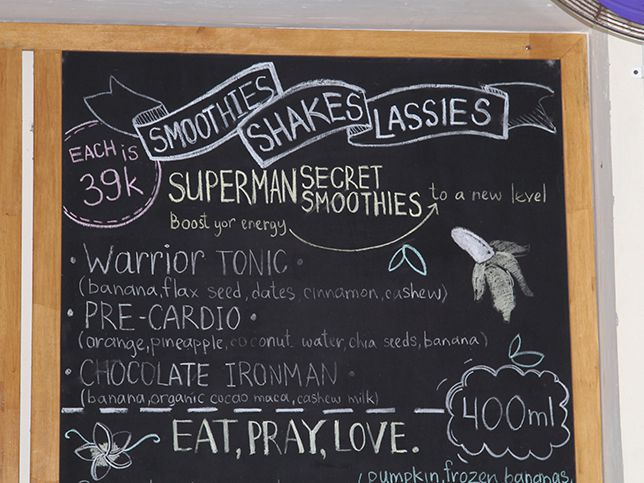 SMOOTHIES SHAKES LASSIES
EACH is
39k
SUPERMAN SECRET SMOOTHIES to a new level
Boost yor energy
• Warrior TONIC •
(banana, flax seed, dates, cinnamon, cashew)
• PRE-CARDIO •
(orange, pineapple, coconut water, chia seeds, banana)
• CHOCOLATE IRONMAN •
(banana, organic cocao maca, cashew milk)
400ml
EAT, PRAY, LOVE.
(pumpkin, frozen bananas,